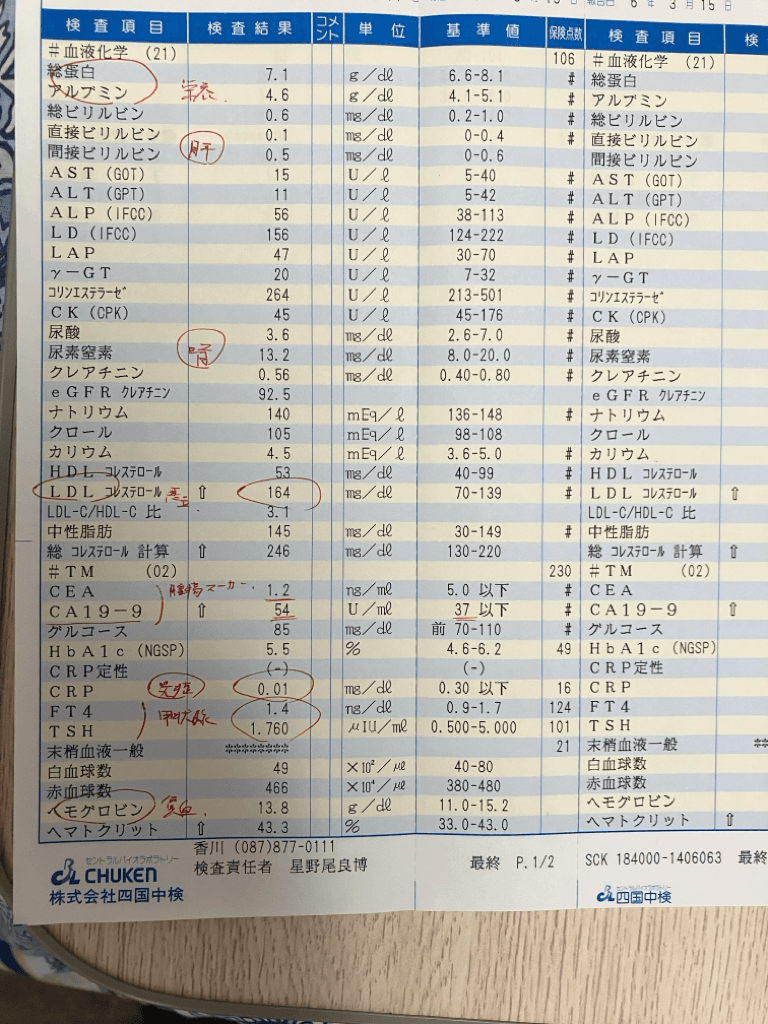 6 年 3 月 15 日
検査項目 検査結果 コメント 単位 基準値 保険点数 検査項目 検
#血液化学 (21) 106 #血液化学 (21)
総蛋白 7.1 g/dl 6.6-8.1 # 総蛋白
アルブミン 4.6 g/dl 4.1-5.1 # アルブミン
総ビリルビン 0.6 mg/dl 0.2-1.0 # 総ビリルビン
直接ビリルビン 0.1 mg/dl 0-0.4 # 直接ビリルビン
間接ビリルビン 肝 0.5 mg/dl 0-0.6 間接ビリルビン
AST (GOT) 15 U/l 5-40 # AST (GOT)
ALT (GPT) 11 U/l 5-42 # ALT (GPT)
ALP (IFCC) 56 U/l 38-113 # ALP (IFCC)
LD (IFCC) 156 U/l 124-222 # LD (IFCC)
LAP 47 U/l 30-70 # LAP
γ-GT 20 U/l 7-32 # γ-GT
コリンエステラーゼ 264 U/l 213-501 # コリンエステラーゼ
CK (CPK) 45 U/l 45-176 # CK (CPK)
尿酸 3.6 mg/dl 2.6-7.0 # 尿酸
尿素窒素 腎 13.2 mg/dl 8.0-20.0 # 尿素窒素
クレアチニン 0.56 mg/dl 0.40-0.80 # クレアチニン
eGFR クレアチニン 92.5 eGFR クレアチニン
ナトリウム 140 mEq/l 136-148 # ナトリウム
クロール 105 mEq/l 98-108 クロール
カリウム 4.5 mEq/l 3.6-5.0 # カリウム
HDL コレステロール 53 mg/dl 40-99 # HDL コレステロール
LDL コレステロール 悪玉 ⇧ 164 mg/dl 70-139 # LDL コレステロール ⇧
LDL-C/HDL-C 比 3.1 LDL-C/HDL-C 比
中性脂肪 145 mg/dl 30-149 # 中性脂肪
総 コレステロール 計算 ⇧ 246 mg/dl 130-220 総 コレステロール 計算 ⇧
#TM (02) 230 #TM (02)
CEA 腫瘍マーカー. 1.2 ng/ml 5.0 以下 # CEA
CA19-9 ⇧ 54 U/ml 37 以下 # CA19-9 ⇧
グルコース 85 mg/dl 前 70-110 # グルコース
HbA1c (NGSP) 5.5 % 4.6-6.2 49 HbA1c (NGSP)
CRP定性 (-) (-) CRP定性
CRP 炎症 0.01 mg/dl 0.30 以下 16 CRP
FT4 甲状腺 1.4 ng/dl 0.9-1.7 124 FT4
TSH 1.760 μIU/ml 0.500-5.000 101 TSH
末梢血液一般 ******** 21 末梢血液一般 **
白血球数 49 ×10²/μl 40-80 白血球数
赤血球数 466 ×10⁴/μl 380-480 赤血球数
ヘモグロビン 貧血. 13.8 g/dl 11.0-15.2 ヘモグロビン
ヘマトクリット ⇧ 43.3 % 33.0-43.0 ヘマトクリット ⇧
セントラルバイオラボラトリー
CHUKEN
株式会社四国中検
香川 (087)877-0111
検査責任者 星野尾良博
最終 P.1/2
SCK 184000-1406063 最終
セントラルバイオラボラトリー
四国中検